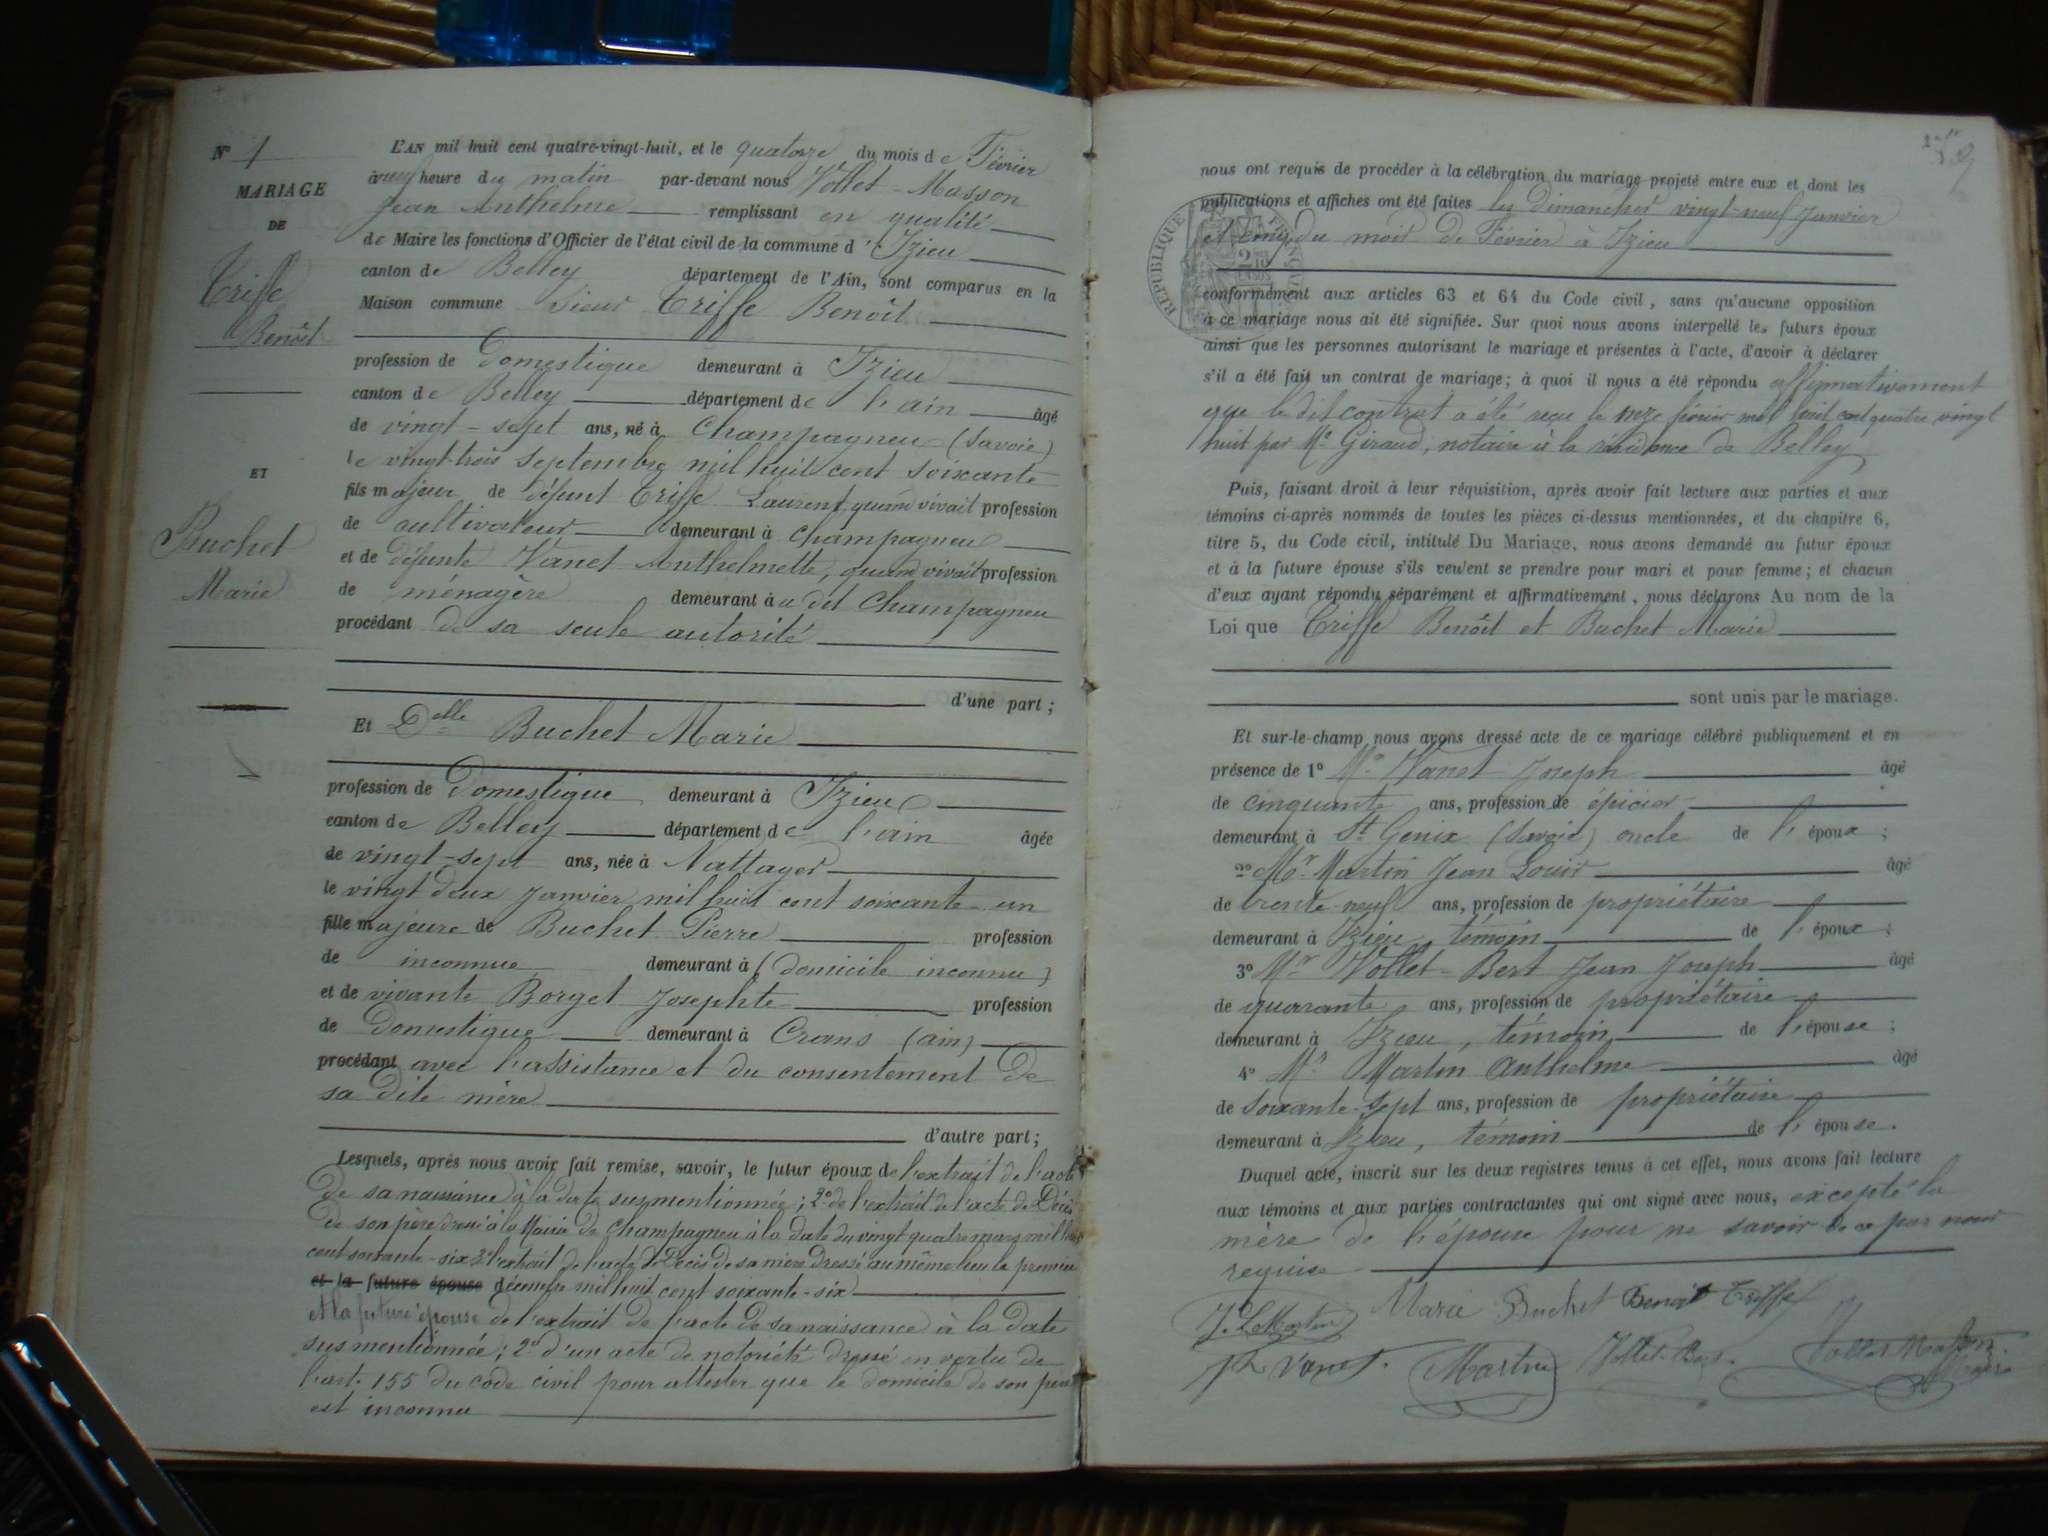 N° 1
MARIAGE
DE
Triffe
Benoît
ET
Buchet
Marie
L'AN mil huit cent quatre-vingt-huit, et le quatorze du mois de Février
à neuf heure du matin par-devant nous Vollet-Masson
Jean Anthelme remplissant en qualité
de Maire les fonctions d'Officier de l'état civil de la commune d'Izieu
canton de Belley département de l'Ain, sont comparus en la
Maison commune Sieur Triffe Benoît
profession de Domestique demeurant à Izieu
canton de Belley département de l'ain âgé
de vingt-sept ans, né à Champagneu (Savoie)
le vingt-trois septembre mil huit cent soixante
fils majeur de défunt Triffe Laurent, quand vivait profession
de cultivateur demeurant à Champagneu
et de défunte Vanet Anthelmette, quand vivait profession
de ménagère demeurant à u dit Champagneu
procédant de sa seule autorité
d'une part ;
Et Delle Buchet Marie
profession de Domestique demeurant à Izieu
canton de Belley département de l'ain âgée
de vingt-sept ans, née à Nattages
le vingt deux Janvier mil huit cent soixante-un
fille majeure de Buchet Pierre profession
de inconnue demeurant à (domicile inconnu)
et de vivante Borget Josephte profession
de Domestique demeurant à Crans (ain)
procédant avec l'assistance et du consentement de
sa dite mère
d'autre part ;
Lesquels, après nous avoir fait remise, savoir, le futur époux de l'extrait de l'acte
de sa naissance à la date susmentionnée ; 2° de l'extrait de l'acte de Décès
de son père dressé à la Mairie de Champagneu à la date du vingt quatre mars mil huit
cent soixante-six 3° l'extrait de l'acte de Décès de sa mère dressé au même lieu le premier
et la future épouse décembre mil huit cent soixante-six
et la future épouse de l'extrait de l'acte de sa naissance à la date
sus mentionnée ; 2° d'un acte de notoriété dressé en vertu de
l'art. 155 du code civil pour attester que le domicile de son père
est inconnu
nous ont requis de procéder à la célébration du mariage projeté entre eux et dont les
publications et affiches ont été faites les dimanches vingt-neuf Janvier
et cinq du mois de Février à Izieu
RÉPUBLIQUE FRANÇAISE
conformément aux articles 63 et 64 du Code civil, sans qu'aucune opposition
à ce mariage nous ait été signifiée. Sur quoi nous avons interpellé les futurs époux
ainsi que les personnes autorisant le mariage et présentes à l'acte, d'avoir à déclarer
s'il a été fait un contrat de mariage ; à quoi il nous a été répondu affirmativement
et que le dit contrat a été reçu le onze février mil huit cent quatre vingt
huit par Me Giraud, notaire à la résidence de Belley
Puis, faisant droit à leur réquisition, après avoir fait lecture aux parties et aux
témoins ci-après nommés de toutes les pièces ci-dessus mentionnées, et du chapitre 6,
titre 5, du Code civil, intitulé Du Mariage, nous avons demandé au futur époux
et à la future épouse s'ils veulent se prendre pour mari et pour femme ; et chacun
d'eux ayant répondu séparément et affirmativement, nous déclarons Au nom de la
Loi que Triffe Benoît et Buchet Marie
sont unis par le mariage.
Et sur-le-champ nous avons dressé acte de ce mariage célébré publiquement et en
présence de 1° Mr Vanet Joseph âgé
de cinquante ans, profession de épicier
demeurant à St Genix (Savoie) oncle de l'époux ;
2° Mr Martin Jean Louis âgé
de trente-neuf ans, profession de propriétaire
demeurant à Izieu, témoin de l'époux ;
3° Mr Vollet-Bert Jean Joseph âgé
de quarante ans, profession de propriétaire
demeurant à Izieu, témoin de l'épouse ;
4° Mr Martin Anthelme âgé
de soixante-sept ans, profession de propriétaire
demeurant à Izieu, témoin de l'épouse.
Duquel acte, inscrit sur les deux registres tenus à cet effet, nous avons fait lecture
aux témoins et aux parties contractantes qui ont signé avec nous, excepté la
mère de l'épouse pour ne savoir de ce par nous
requise
J. L. Martin Marie Buchet Benoit Triffe
Jh Vanet. Martin Vollet-Bert. Vollet Masson
Maire